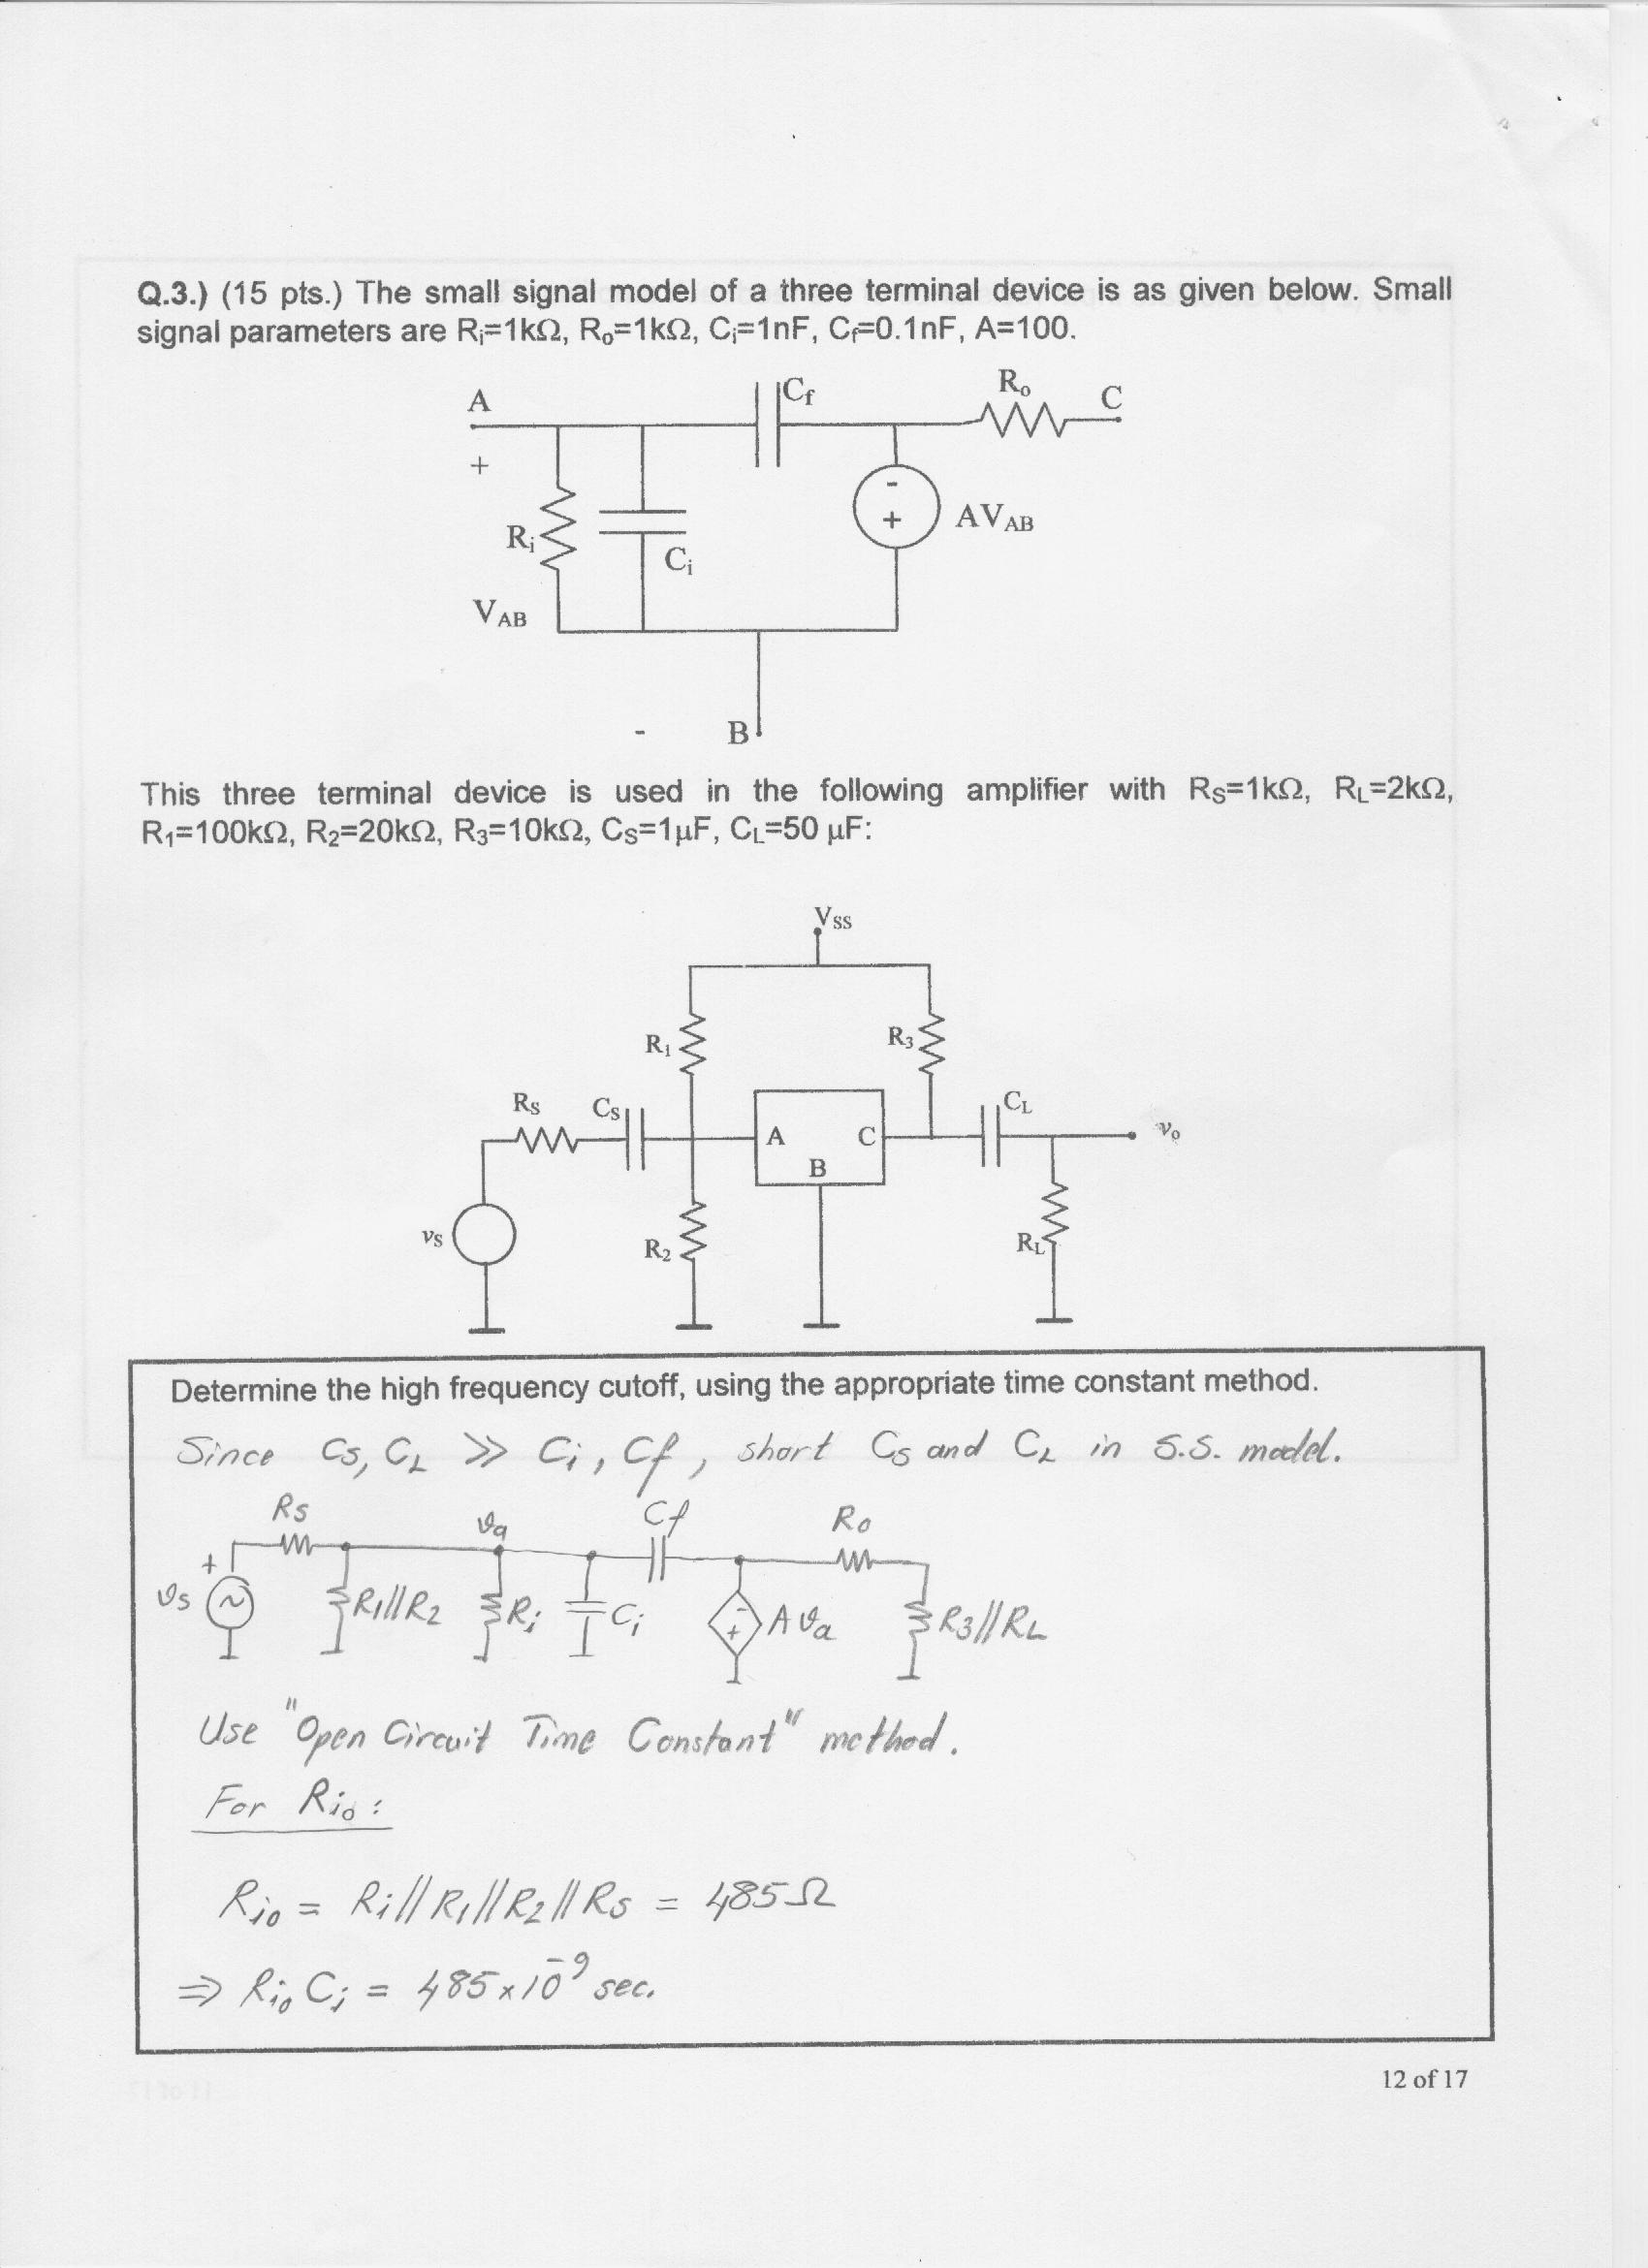 Q.3.) (15 pts.) The small signal model of a three terminal device is as given below. Small
signal parameters are Ri=1kΩ, Ro=1kΩ, Ci=1nF, Cf=0.1nF, A=100.
A
Cf
Ro
C
+
Ri
Ci
-
+
AVAB
VAB
-
B
This three terminal device is used in the following amplifier with RS=1kΩ, RL=2kΩ,
R1=100kΩ, R2=20kΩ, R3=10kΩ, CS=1μF, CL=50 μF:
VSS
R1
R3
RS
CS
CL
A
C
B
vo
vS
R2
RL
Determine the high frequency cutoff, using the appropriate time constant method.
Since Cs, CL >> Ci, Cf, short Cs and CL in S.S. model.
Rs
va
Cf
Ro
+
vs
R1//R2
Ri
Ci
-
+
A va
R3//RL
Use "Open Circuit Time Constant" method.
For Rio:
Rio = Ri//R1//R2//Rs = 485Ω
⇒ Rio Ci = 485x10⁻⁹ sec.
12 of 17